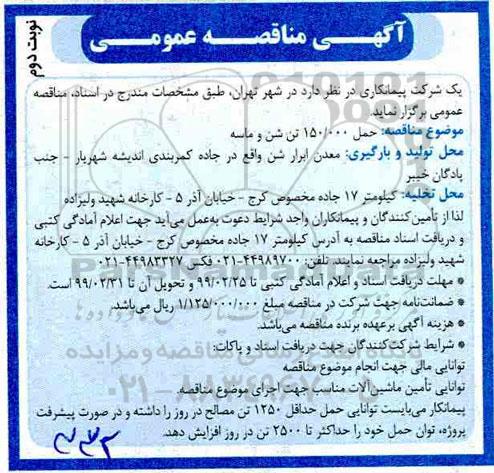 آگهـی مناقصـه عمومـی
نوبت دوم
یک شرکت پیمانکاری در نظر دارد در شهر تهران، طبق مشخصات مندرج در اسناد، مناقصه
عمومی برگزار نماید.
موضوع مناقصه: حمل ۱۵۰/۰۰۰ تن شن و ماسه
محل تولید و بارگیری: معدن ابرار شن واقع در جاده کمربندی اندیشه شهریار - جنب
پادگان خیبر
محل تخلیه: کیلومتر ۱۷ جاده مخصوص کرج - خیابان آذر ۵ - کارخانه شهید ولیزاده
لذا از تأمین‌کنندگان و پیمانکاران واجد شرایط دعوت به‌عمل می‌آید جهت اعلام آمادگی کتبی
و دریافت اسناد مناقصه به آدرس کیلومتر ۱۷ جاده مخصوص کرج - خیابان آذر ۵ - کارخانه
شهید ولیزاده مراجعه نمایند. تلفن: ۴۴۹۸۹۷۰۰-۰۲۱ فکس ۴۴۹۸۳۳۲۷-۰۲۱
* مهلت دریافت اسناد و اعلام آمادگی کتبی تا ۹۹/۰۲/۲۵ و تحویل آن تا ۹۹/۰۲/۳۱ است.
* ضمانت‌نامه جهت شرکت در مناقصه مبلغ ۱/۱۲۵/۰۰۰/۰۰۰ ریال می‌باشد.
* هزینه آگهی برعهده برنده مناقصه می‌باشد.
* شرایط شرکت‌کنندگان جهت دریافت اسناد و پاکات:
توانایی مالی جهت انجام موضوع مناقصه
توانایی تأمین ماشین‌آلات مناسب جهت اجرای موضوع مناقصه.
پیمانکار می‌بایست توانایی حمل حداقل ۱۲۵۰ تن مصالح در روز را داشته و در صورت پیشرفت
پروژه، توان حمل خود را حداکثر تا ۲۵۰۰ تن در روز افزایش دهد.